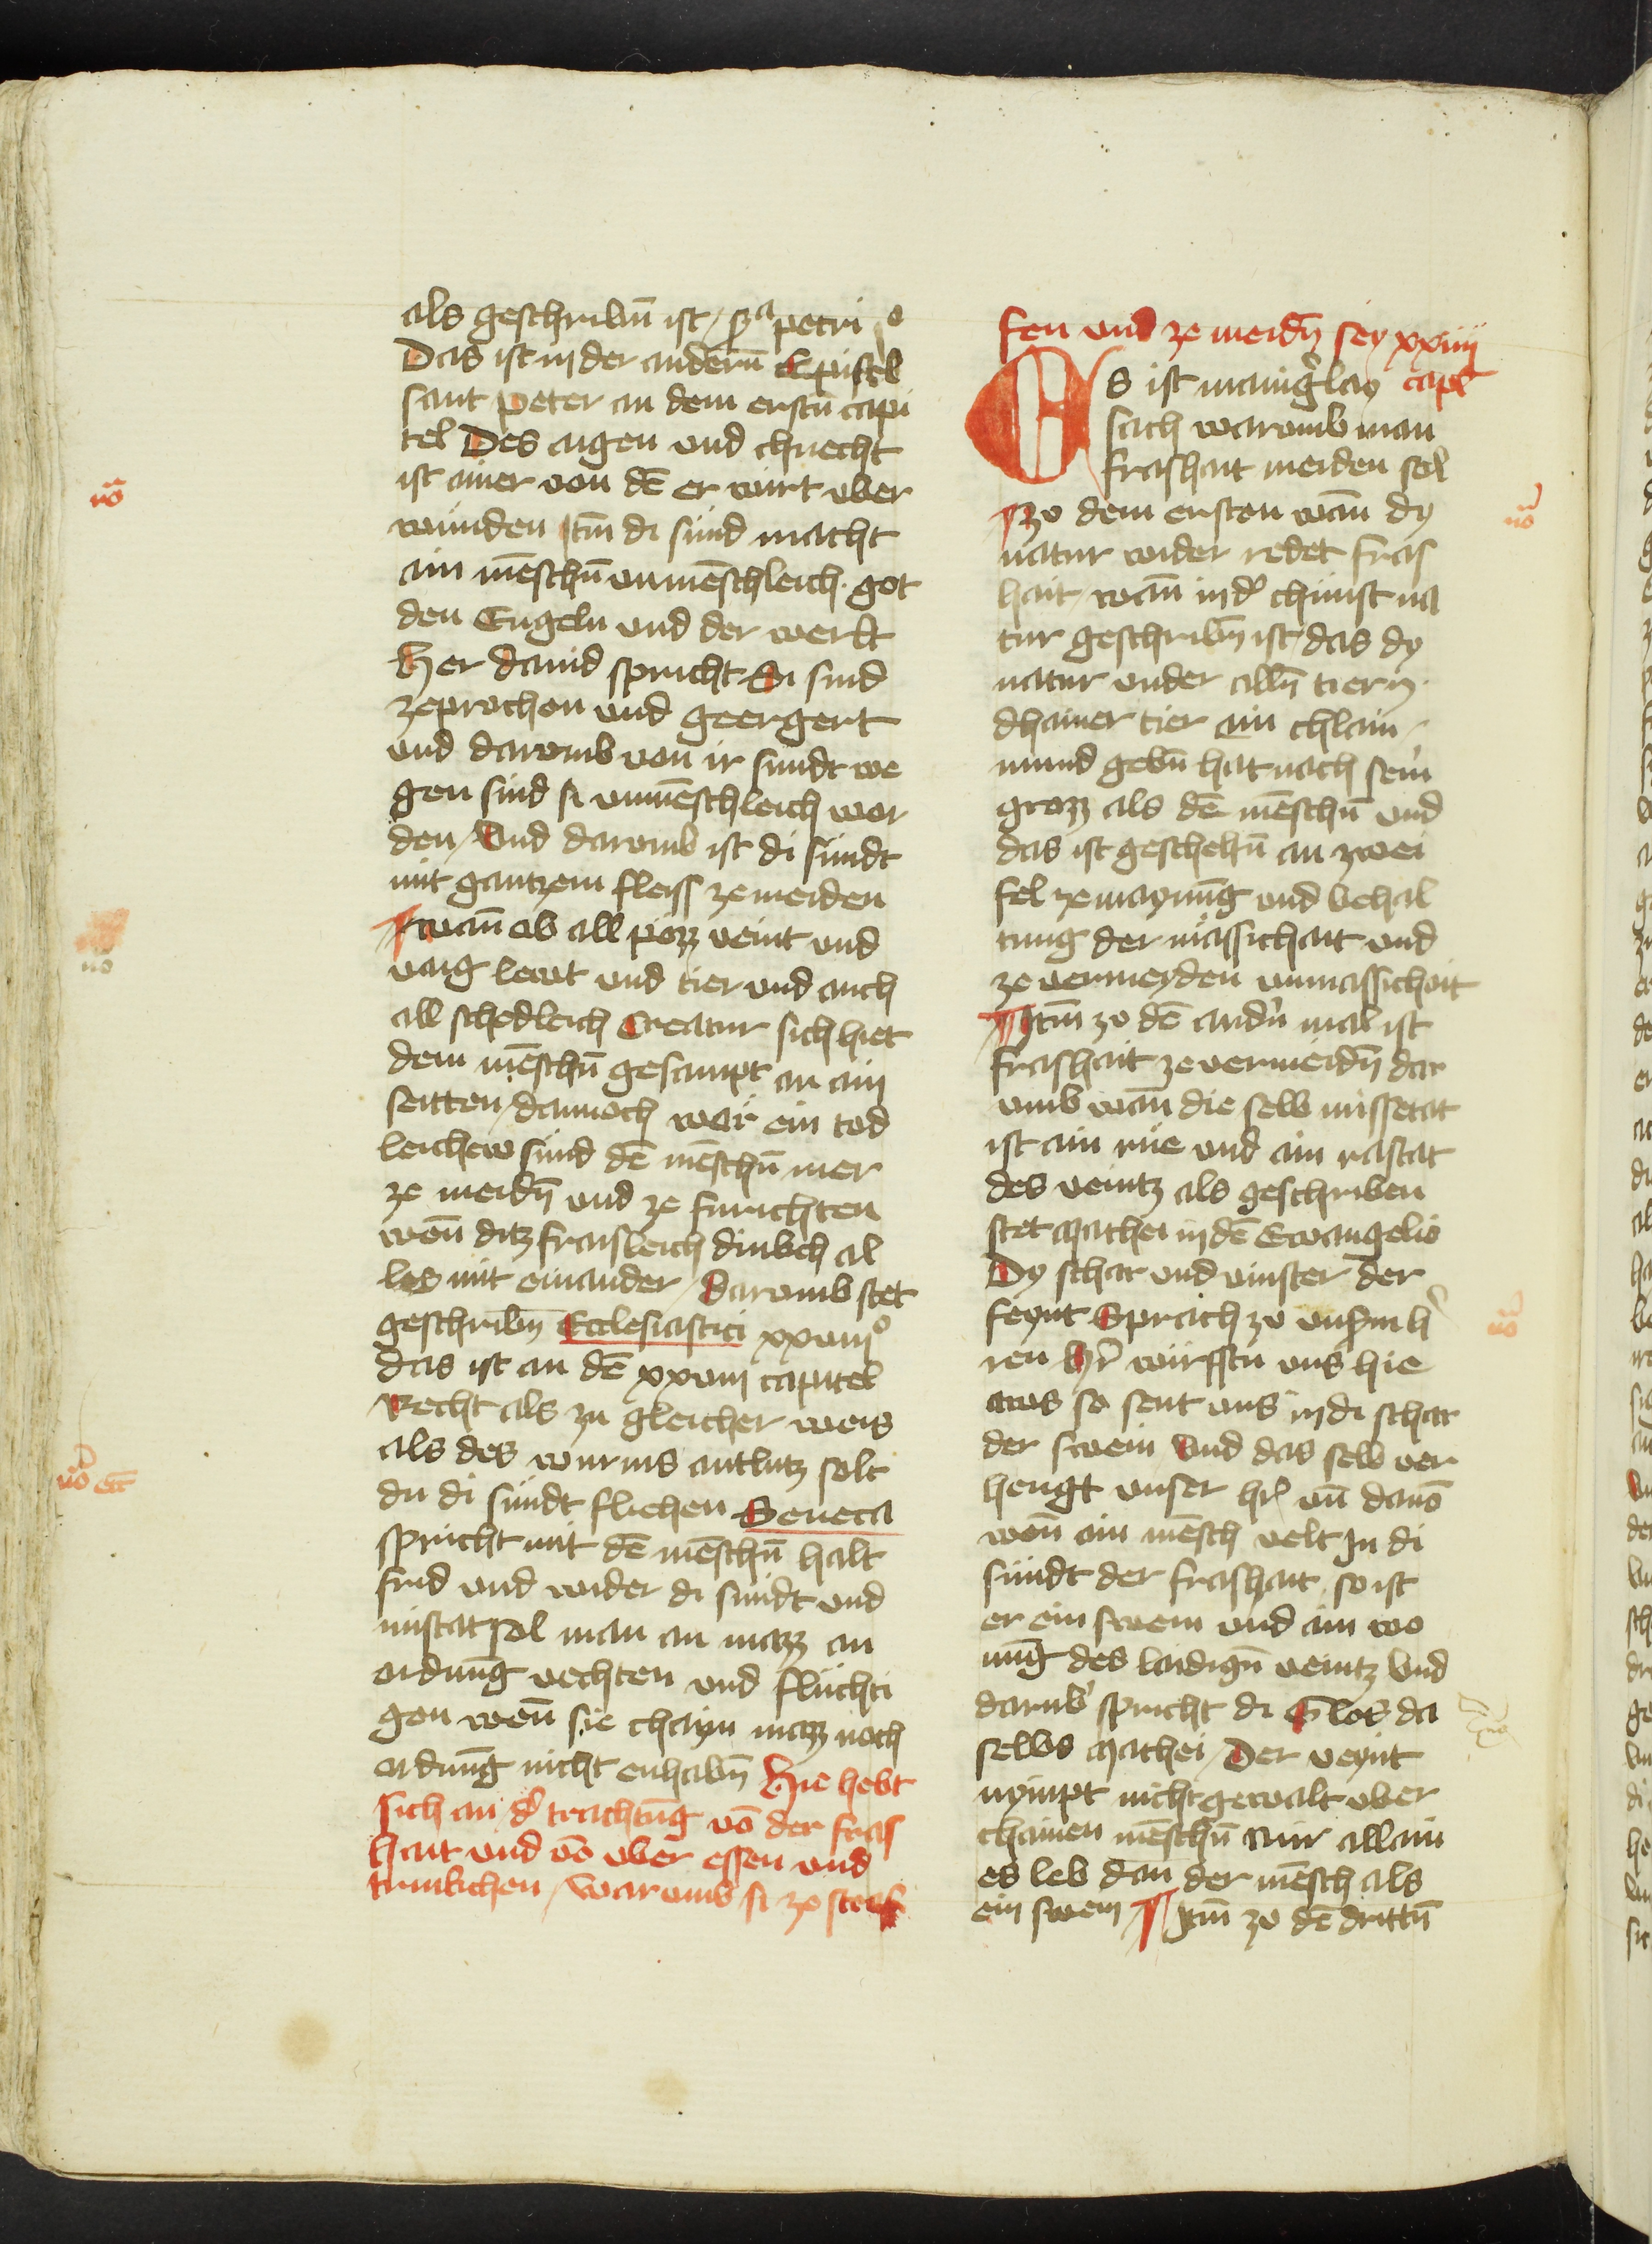 als geschribn̄ ist / s͛a petri jo
Das ist in der anderm̄ Epistel
sant peter an dem erstn̄ capi
tel Des aigen und chnecht
ist ainer von dē er wirt uber
wunden Itm̄ di sund macht
ain mēschn̄ unmēschleich · got
den Engeln und der werlt
Her david spricht Si sind
zeprochen und geergert
und daromb von ir sundt we
gen sind si unmēschleich wor
den / Und daromb ist di sundt
mit gantzem fleiss ze meiden
¶ wan̄ ob all pözz veint und
vaig lewt und tier und auch
all schedleich Creatur sich hiet
dem mēschn̄ gesampt an ain
seitten / dannoch wär ein tod
leichew sund dē mēschn̄ mer
ze meidn̄ und ze furichten
wen̄ ditz fraisleich dinkch al
les mit einander / Daromb stet
geschribn̄ Ecclesiastici xxviiio
das ist an dē xxviii capitel
Recht als zu gleicher weis
als des wurms antlutz solt
du di sundt fliehen Seneca
spricht mit dē mēschn̄ halt
frid und wider di sundt und
mistat sol man an mazz an
ordnūg vechten und fluchti
gen wen̄ sie chayn mazz noch
ordnūg nicht enhabn̄ Hie hebt
sich an d͛ trachtūg vō der fras
hait und vō uber essen und
trinkchen / waromb si ze straf
fen und ze meidn̄ sey xxiiii
capl
Es ist maing͛lay
sach waromb man
frashait meiden sol
¶ zo dem ersten wan̄ dy
natur wider redet fras
hait / wan̄ in d͛ chunst na
tur geschribn̄ ist / das dy
natur under alln̄ tiern
dhainer tier ain chlain
mund gebn̄ hat nach sein͛
grozz als dē mēschn̄ und
das ist geschehn̄ an zwei
fel ze maynūg und behal
tung der mässichait und
ze vermeyden unmassichait
¶ Itm̄ zo dē andn͛ mal ist
frashait ze vermeidn̄ dar
umb wan̄ die selb missetat
ist ain rue und ain rastat
des veintz als geschriben
stet Mathei in dē Ewangelio
Dy schar und vinster der
feynt Sprach zo uns͛m h͛
ren Hr͛ wirfstu uns hie
aws so sent uns in di schar
der swein Und das selb ver
hengt unser hr͛ un̄ davō
wen̄ ain mēsch velt In di
sundt der frashait / so ist
er ein swein und ain wo
nūg des laidign̄ veintz Und
darub͛ spricht di Glos da
selbs Mathei / Der veynt
nympt nicht gewalt uber
chainen mēschn̄ nur allain
es leb dan der mēsch als
ein swein ¶ Itm̄ zo dē drittn̄
nō
nō
nō etc̄
nō
nō